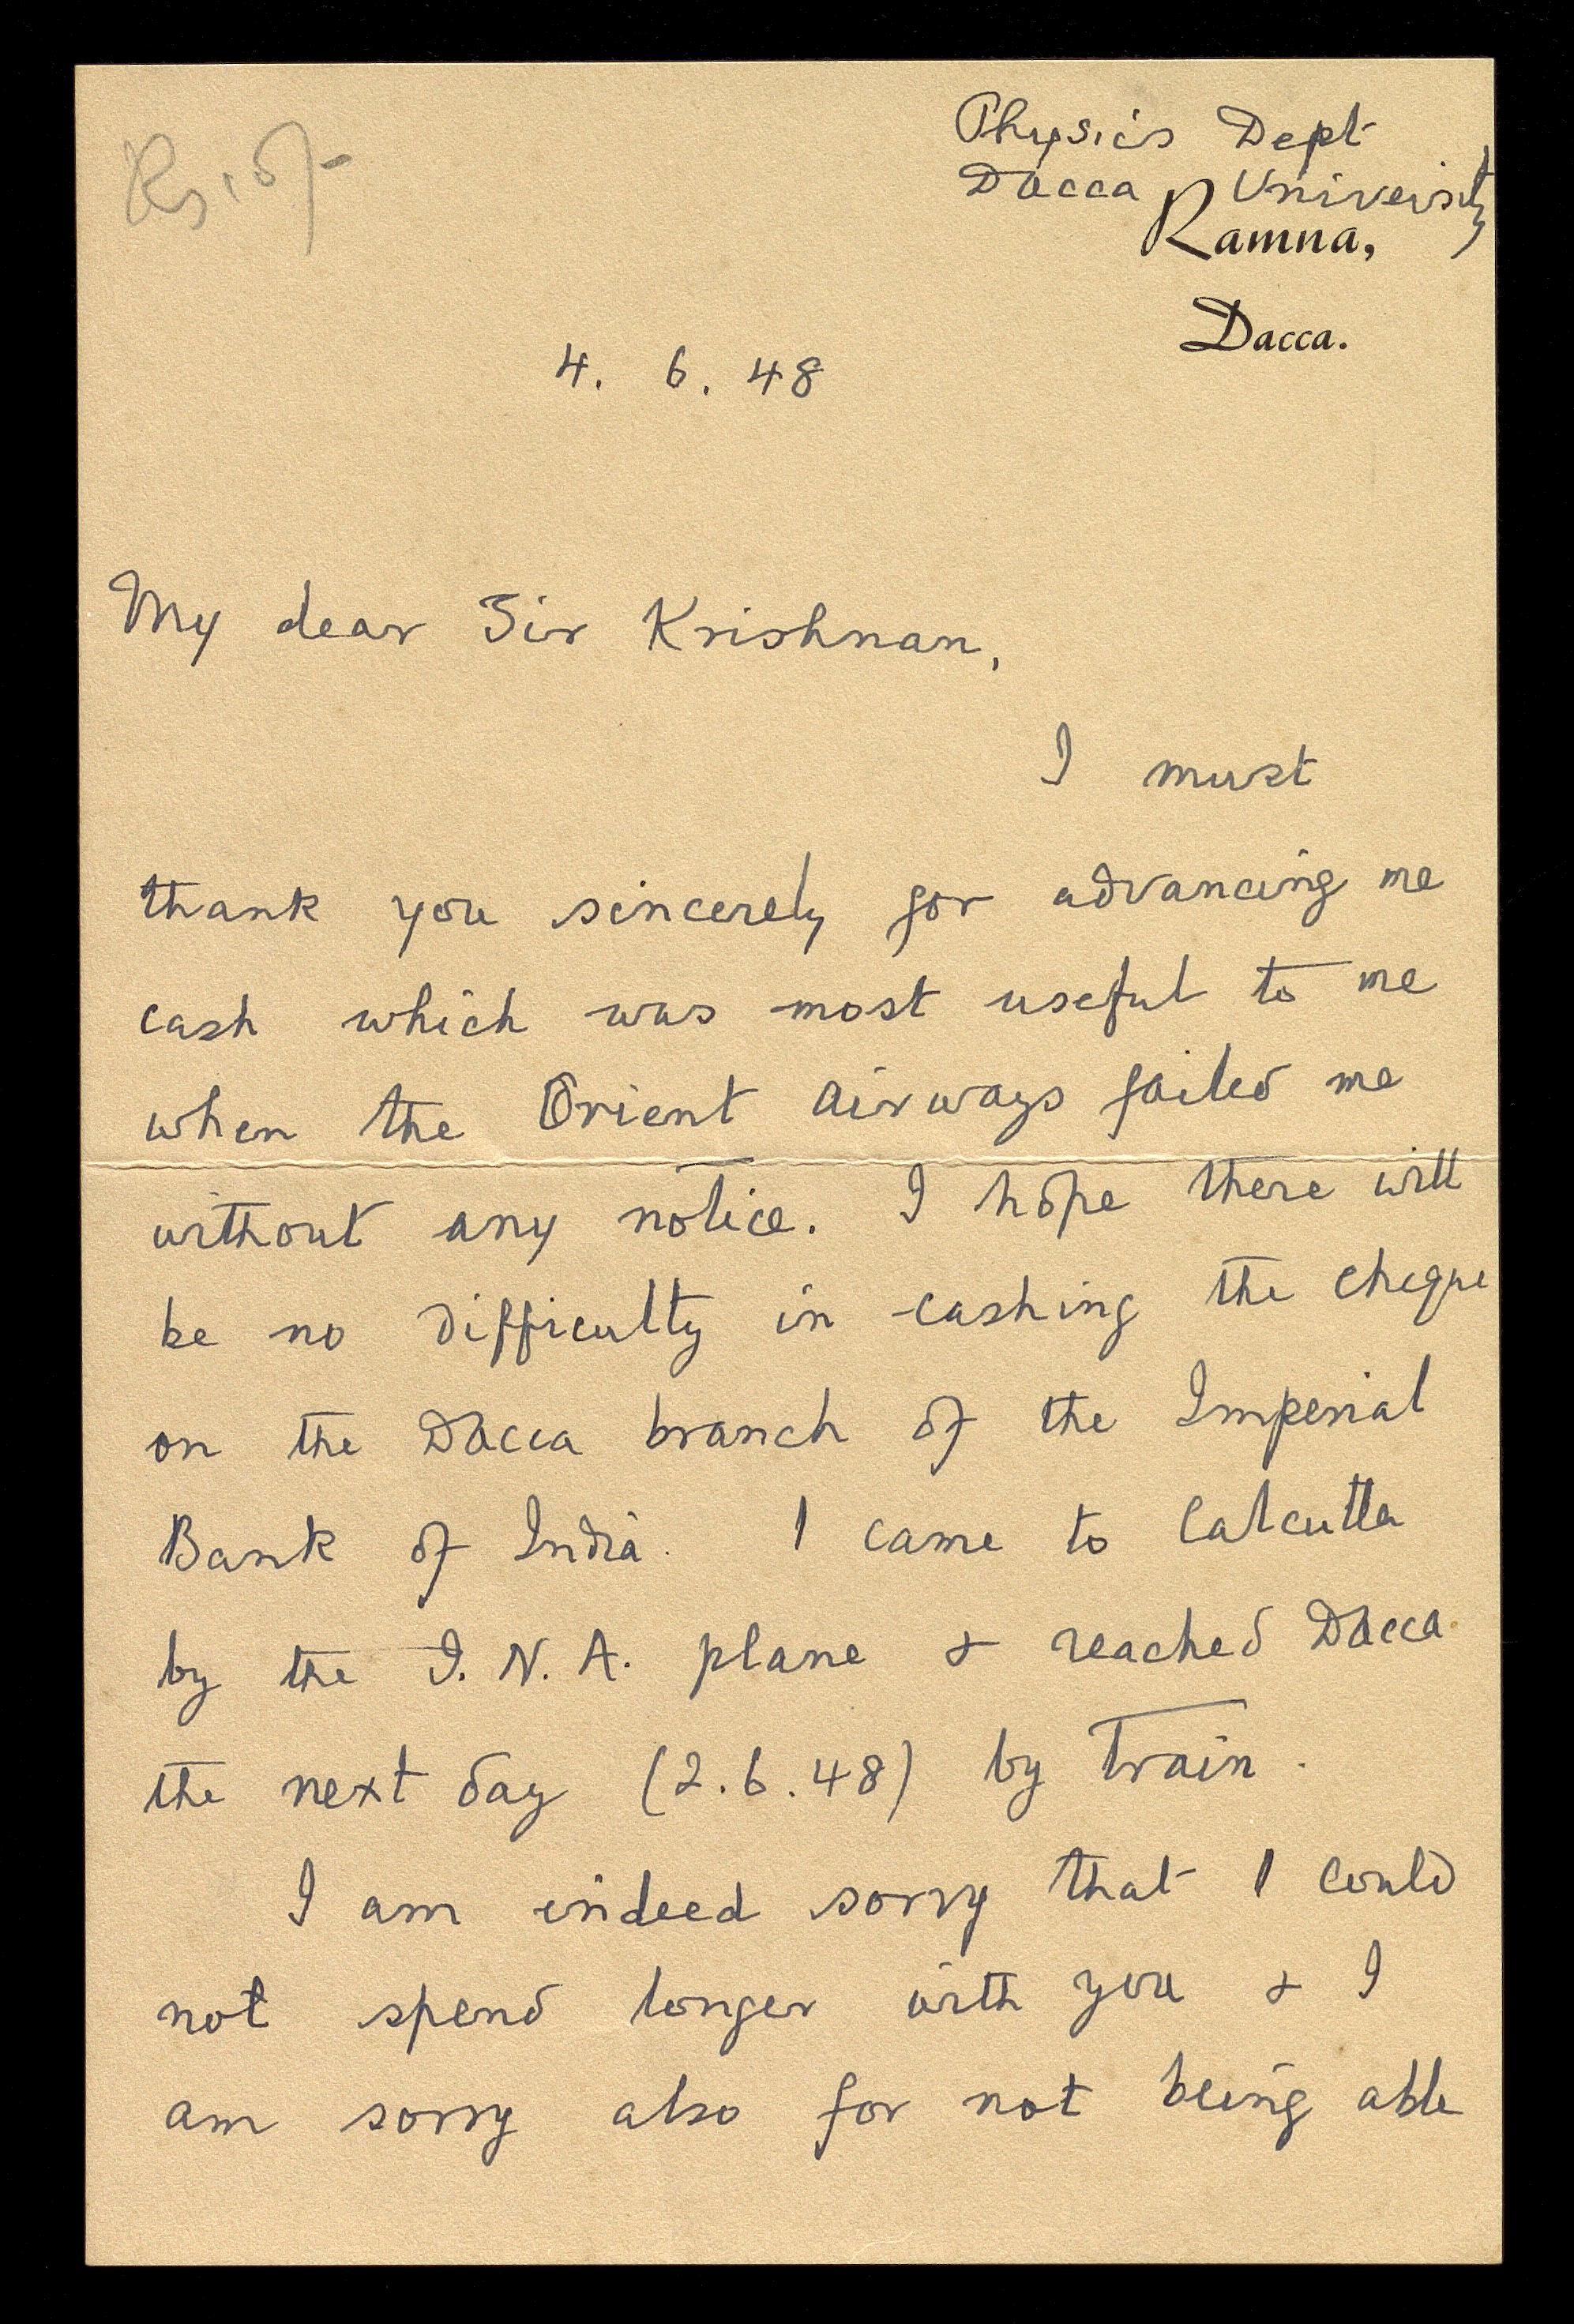 Physics Dept
Dacca University
Ramna,
Dacca.
4. 6. 48
My dear Sir Krishnan,
I must
thank you sincerely for advancing me
cash which was most useful to me
when the Orient Airways failed me
without any notice. I hope there will
be no difficulty in cashing the cheque
on the Dacca branch of the Imperial
Bank of India. I came to Calcutta
by the I. N. A. plane & reached Dacca
the next day (2.6.48) by train.
I am indeed sorry that I could
not spend longer with you & I
am sorry also for not being able